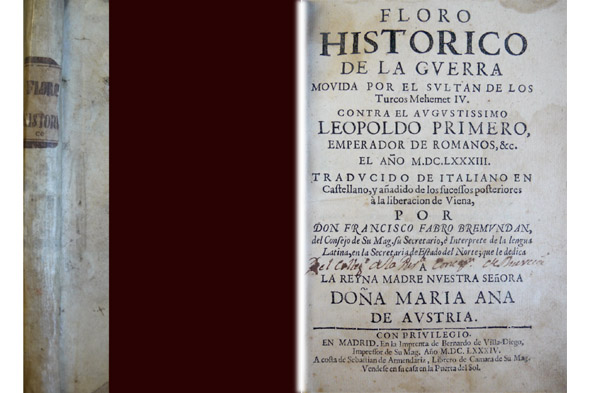 FLORO
HISTORI
CO
FLORO
HISTORICO
DE LA GVERRA
MOVIDA POR EL SVLTAN DE LOS
Turcos Mehemet IV.
CONTRA EL AVGVSTISSIMO
LEOPOLDO PRIMERO,
EMPERADOR DE ROMANOS, &c.
EL AÑO M.DC.LXXXIII.
TRADVCIDO DE ITALIANO EN
Castellano, y añadido de los sucessos posteriores
à la liberacion de Viena,
POR
DON FRANCISCO FABRO BREMVNDAN,
del Consejo de Su Mag. su Secretario, è Interprete de la lengua
Latina, en la Secretaria de Estado del Norte; que le dedica
A
LA REYNA MADRE NVESTRA SEñORA
DOÑA MARIA ANA
DE AVSTRIA.
CON PRIVILEGIO.
EN MADRID. En la Imprenta de Bernardo de Villa-Diego,
Impressor de Su Mag. Año M.DC.LXXXIV.
A costa de Sebastian de Armendariz, Librero de Camara de Su Mag.
Vendese en su casa en la Puerta del Sol.